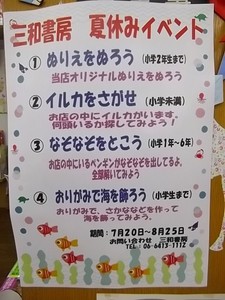 三和書房　夏休みイベント
① ぬりえをぬろう（小学2年生まで）
当店オリジナルぬりえをぬろう
② イルカをさがせ（小学未満）
お店の中にイルカがいます。
何頭いるか探してみよう！
③ なぞなぞをとこう（小学1年～6年）
お店の中にいるペンギンがなぞなぞを出してるよ。
全部解いてみよう
④ おりがみで海を飾ろう（小学生まで）
おりがみで、さかななどを作って
海を飾ってみよう。
期間：7月20日～8月25日
お問い合わせ　三和書房
TEL：06-6413-1112